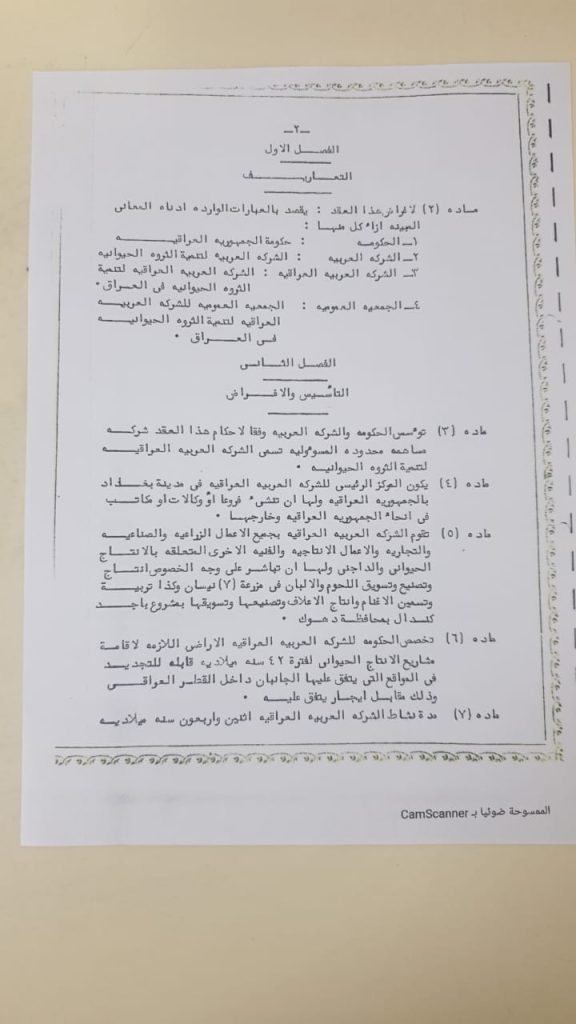 ـ٢ـ
الفصــل الاول
التعاريــــف
مـاده (٢) لاغراض هذا العقد : يقصد بالعبارات الوارده ادناه المعانى
المبينه ازاء كل منهـا :
١ـ الحكومه : حكومة الجمهوريه العراقيــــه
٢ـ الشركه العربيه : الشركه العربيه لتنمية الثروه الحيوانيه
٣ـ الشركه العربيه العراقيه : الشركه العربيه العراقيه لتنمية
الثروه الحيوانيه فى العــراق ٠
٤ـ الجمعيه العموميه : الجمعيه العموميه للشركه العربيــه
العراقيه لتنمية الثروه الحيوانيـــه
فــى العــراق ٠
الفصل الثــانى
التأسيس والاغــراض
ماده (٣) توءسس الحكومه والشركه العربيه وفقا لاحكام هذا العقد شركــه
مساهمه محدوده المسوءوليه تسمى الشركه العربيه العراقيــه
لتنمية الثروه الحيوانيــه ٠
ماده (٤) يكون المركز الرئيسى للشركه العربيه العراقيه فى مدينة بغــداد
بالجمهوريه العراقيه ولها ان تنشىء فروعا او وكالات او مكاتــب
فى انحاء الجمهوريه العراقيه وخارجهــا ٠
ماده (٥) تقوم الشركه العربيه العراقيه بجميع الاعمال الزراعيه والصناعيــه
والتجاريه والاعمال الانتاجيه والفنيه الاخرى المتعلقه بالانتــاج
الحيوانى والداجنى ولهــا ان تباشر على وجه الخصوص انتــاج
وتصنيع وتسويق اللحوم والالبان فى مزرعة (٧) نيسان وكذا تربيــة
وتسمين الاغنام وانتاج الاعلاف وتصنيعها وتسويقها بمشروع باجــد
كنــدال بمحافظة دهــوك ٠
ماده (٦) تخصص الحكومه للشركه العربيه العراقيه الاراضى اللازمه لاقامــة
مشاريع الانتاج الحيوانى لفترة ٤٢ سنه ميلاديه قابله للتجديــد
فى المواقع التى يتفق عليها الجانبان داخل القطــر العراقــى
وذلك مقابل ايجار يتفق عليــه ٠
ماده (٧) مدة نشاط الشركه العربيه العراقيه اثنين واربعون سنه ميلاديــه
الممسوحة ضوئيا بـ CamScanner